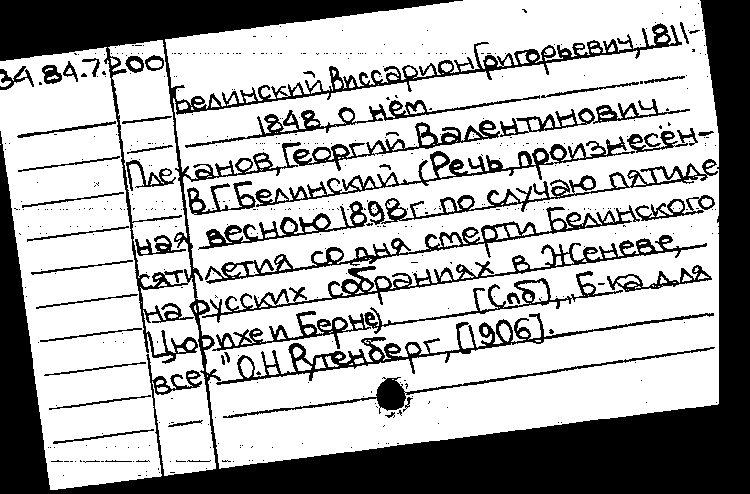 34.84.7.200
Белинский, Виссарион Григорьевич, 1811-
1848, о нём.
Плеханов, Георгий Валентинович.
В.Г. Белинский. (Речь, произнесён-
ная весною 1898 г. по случаю пятиде
сятилетия со дня смерти Белинского
на русских собраниях в Женеве,
Цюрихе и Берне). [Спб], „Б-ка для
всех" О.Н. Рутенберг, [1906].